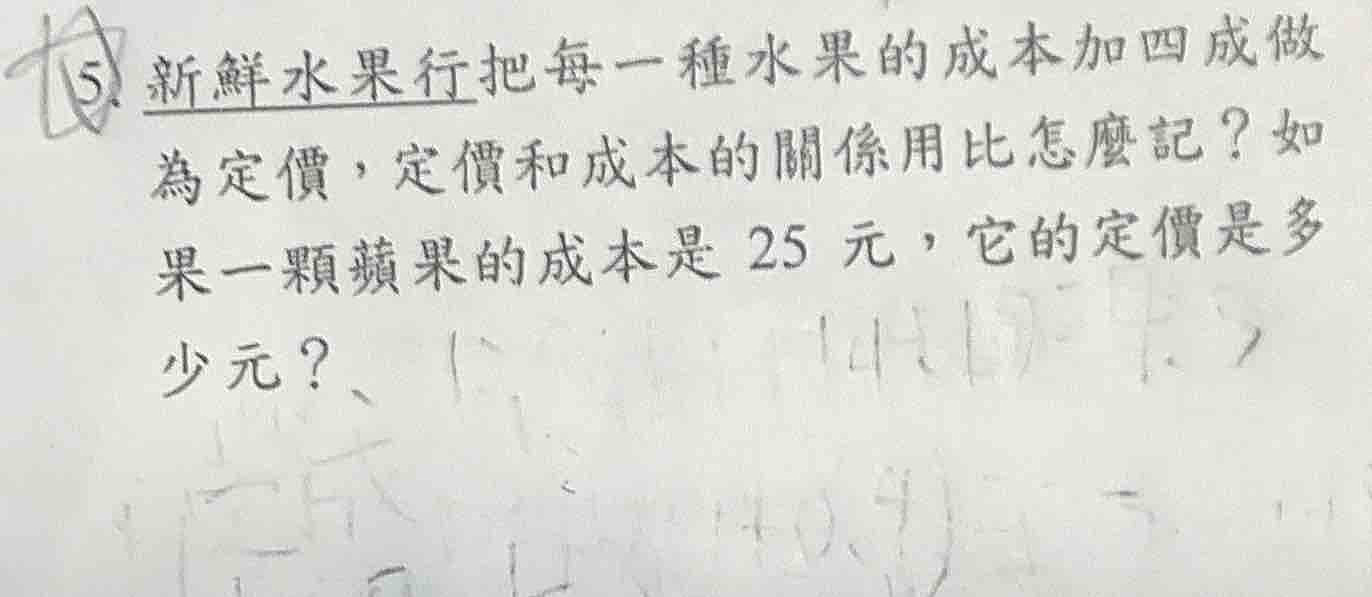 5. 新鮮水果行把每一種水果的成本加四成做
為定價，定價和成本的關係用比怎麼記？如
果一顆蘋果的成本是 25 元，它的定價是多
少元？